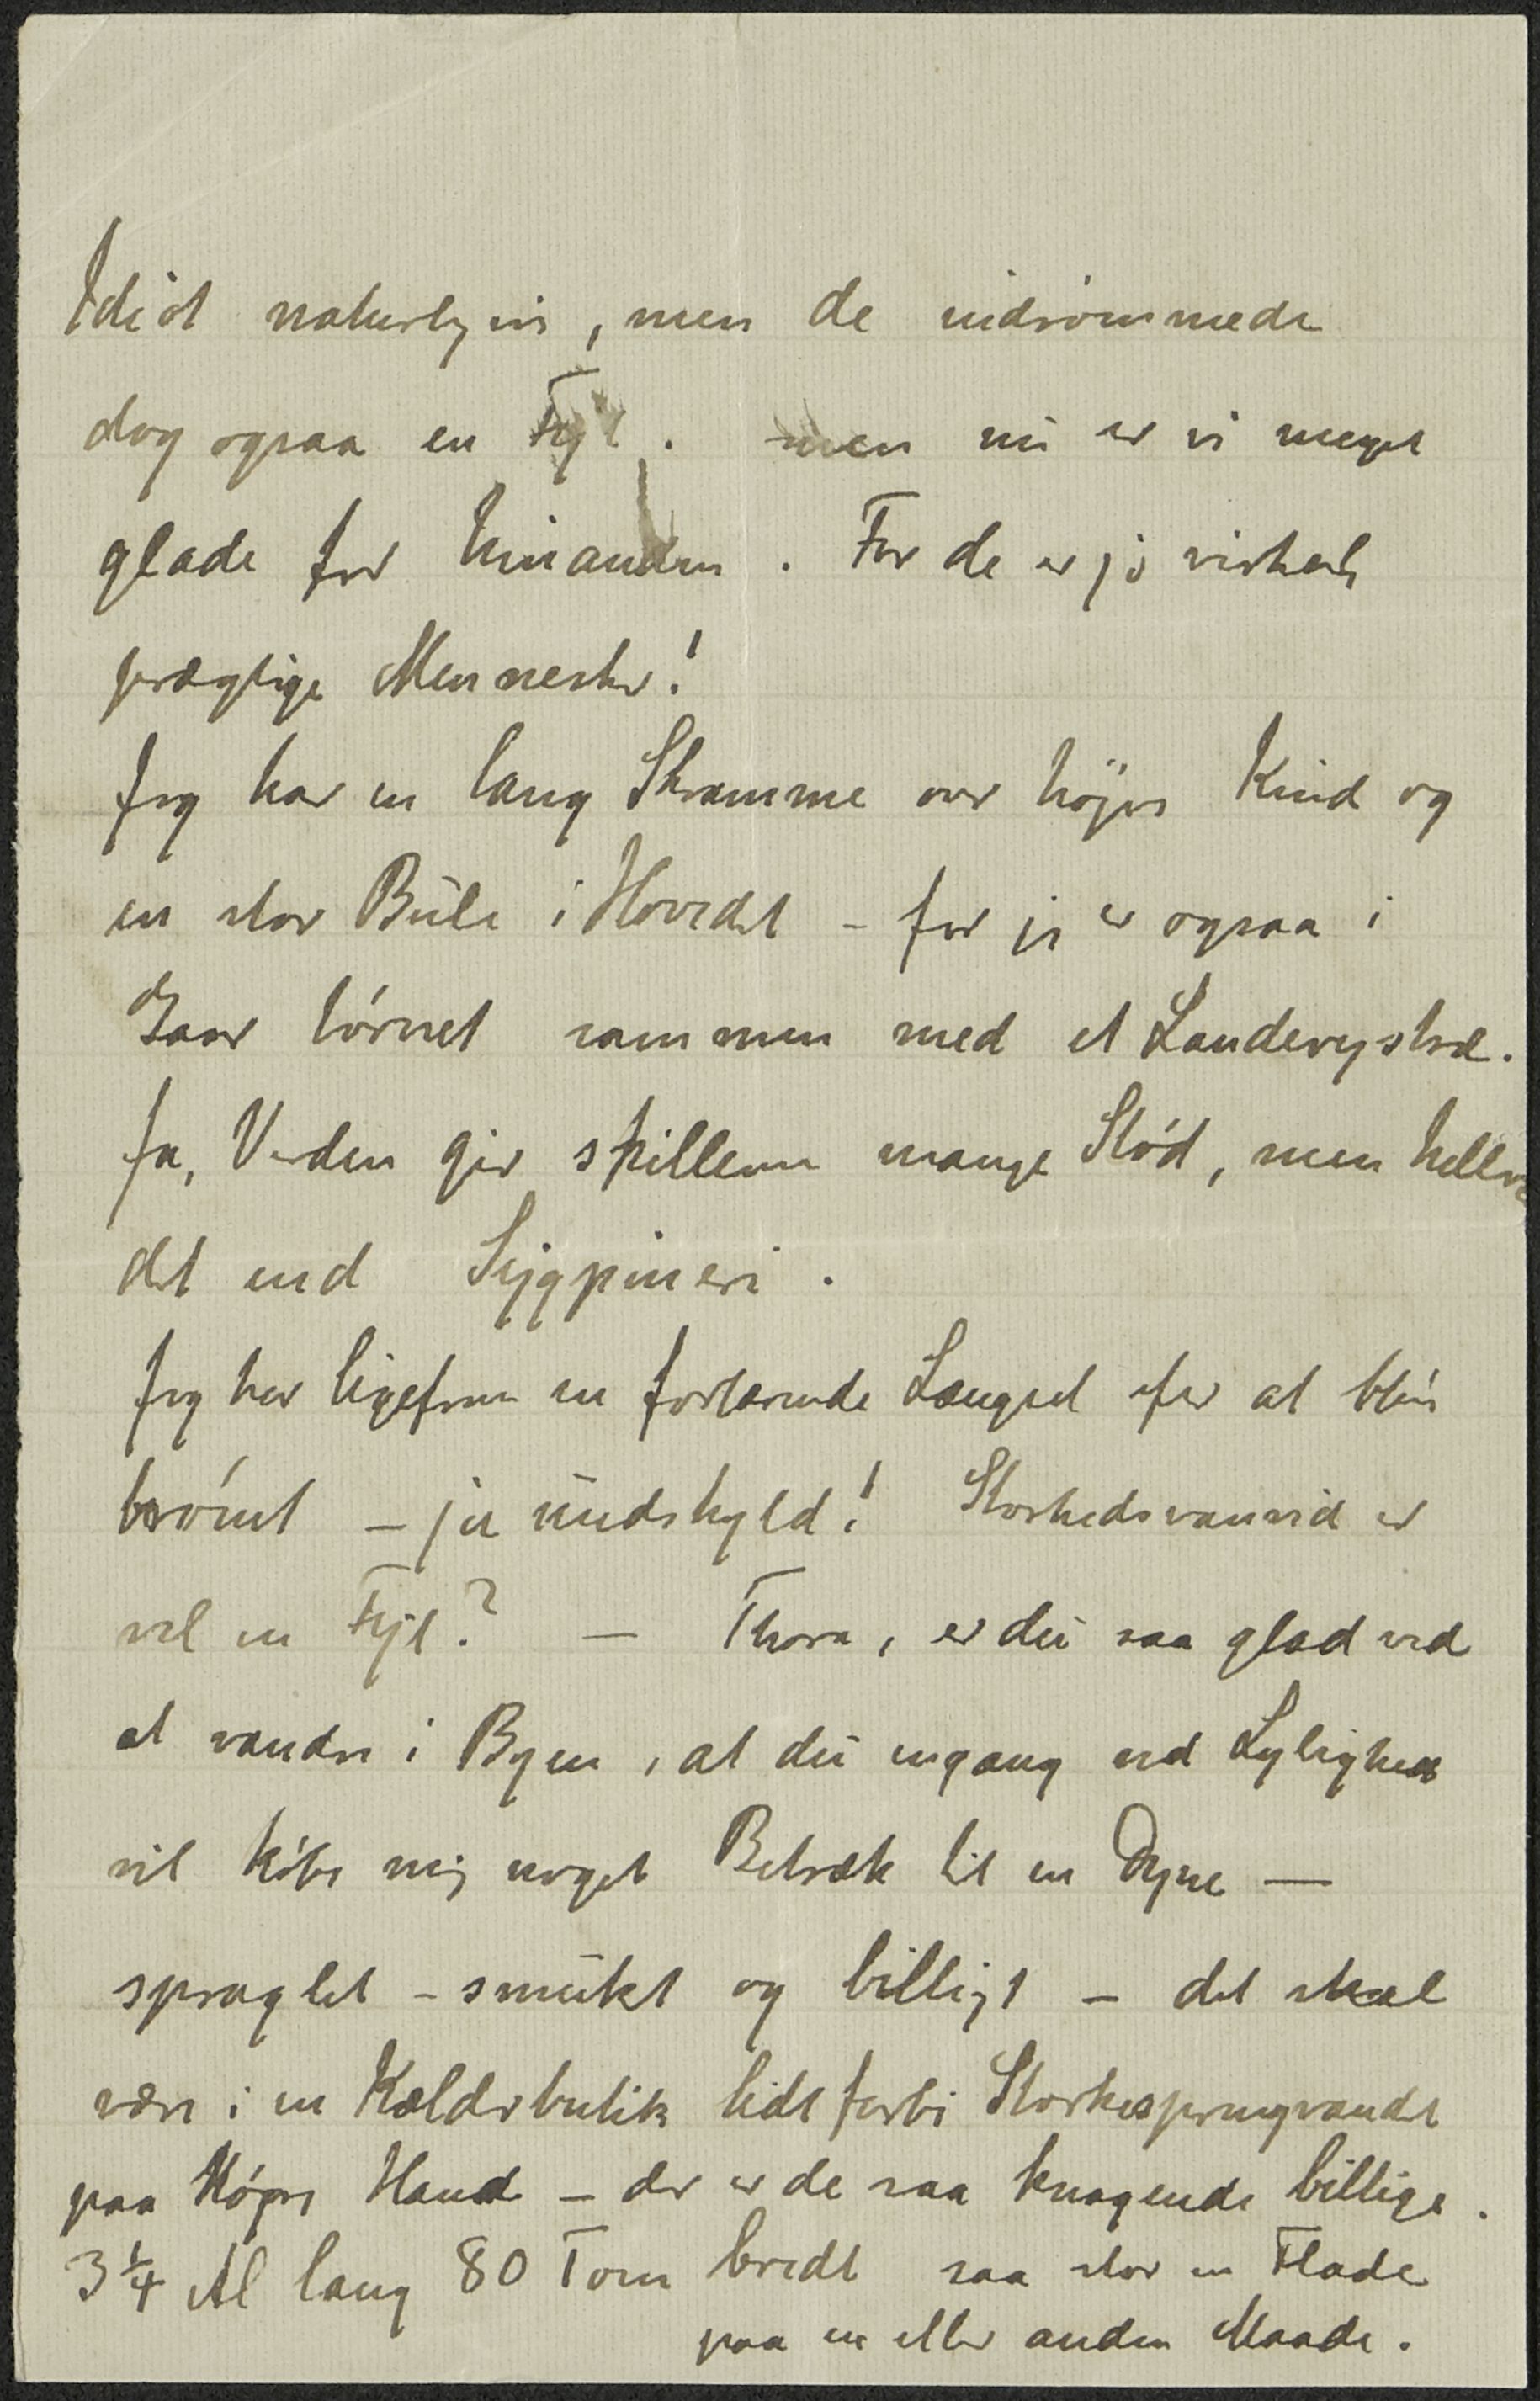 Idiot naturligvis, men de indrömmede
dog ogsaa en Fejl. men nu er vi meget
glade for hinanden. For de er jo virkeli
prægtige Mennesker!
Jeg har en lang Skramme over højre Kind og
en stor Bule i Hovedet – for jeg er ogsaa i
Gaar tørnet sammen med et Landevejstræ.
Ja, Verden gir skillem mange Stød, men hellere
det end Sygpineri.
Jeg har ligefrem en fortærende Længsel efter at bliv
berømt – ja undskyld! Storhedsvanvid er
vel en Fejl? – Thora, er du saa glad ved
at vandre i Byen, at du engang ved Lejlighed
vil købe mig noget Betræk til en Dyne –
spraglet – smukt og billigt – det skal
være i en Kælderbutik lidt forbi Storkespringvandet
paa Højre Haand – der er de saa knagende billige.
3¼ Al lang 80 Tom bredt saa stor en Flade
paa en eller anden Maade.